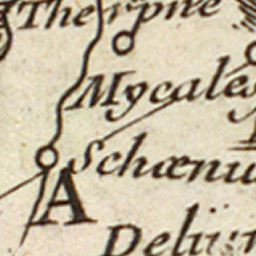 Therpne
Mycales
Schœnu
A
Deliu